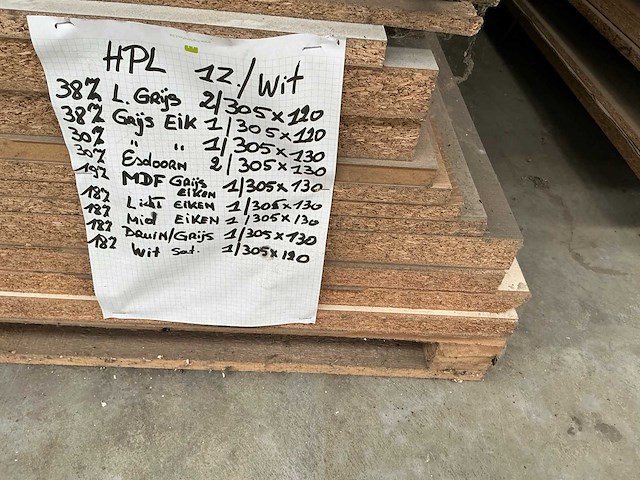 HPL 12/Wit
38% L. Grijs 2/305x120
38% Grijs Eik 1/305x120
30% " " 1/305x130
30% Esdoorn 2/305x130
19% MDF Grijs Eiken 1/305x130
18% Licht Eiken 1/305x130
18% Mid Eiken 1/305x130
18% Druin/Grijs 1/305x130
18% Wit Sat. 1/305x120